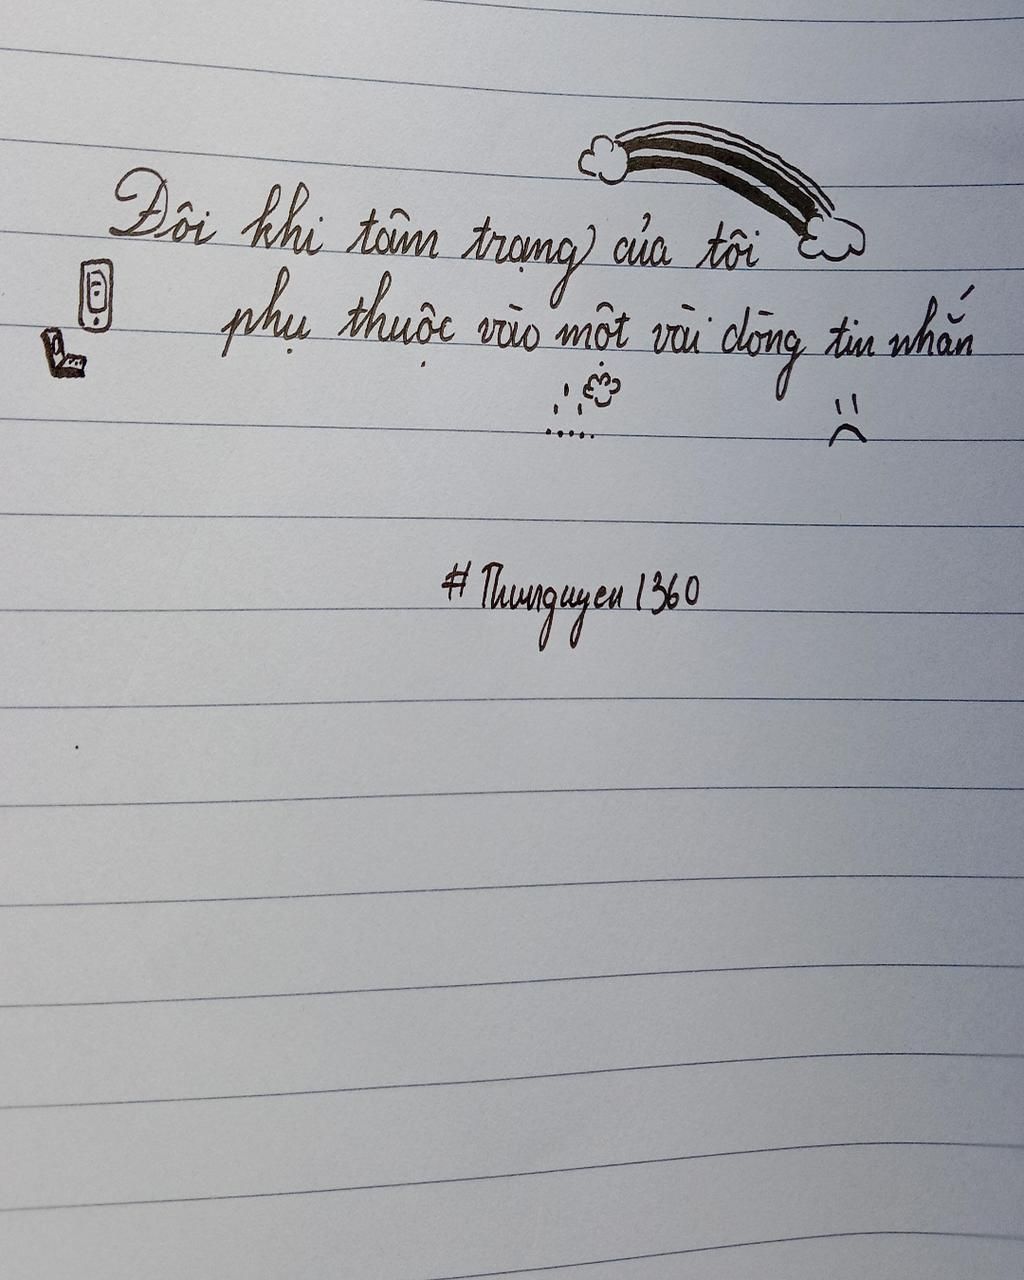 Đôi khi tâm trạng của tôi
phụ thuộc vào một vài dòng tin nhắn
#Thunguyen1360